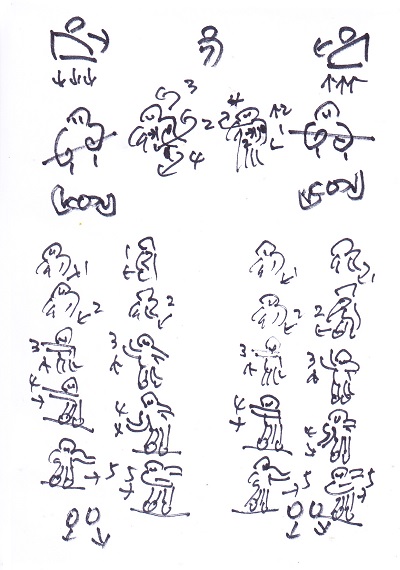 3
2
4
4
2
1
1
1
1
1
2
2
2
2
3
3
3
3
4
4
4
4
5
5
5
5